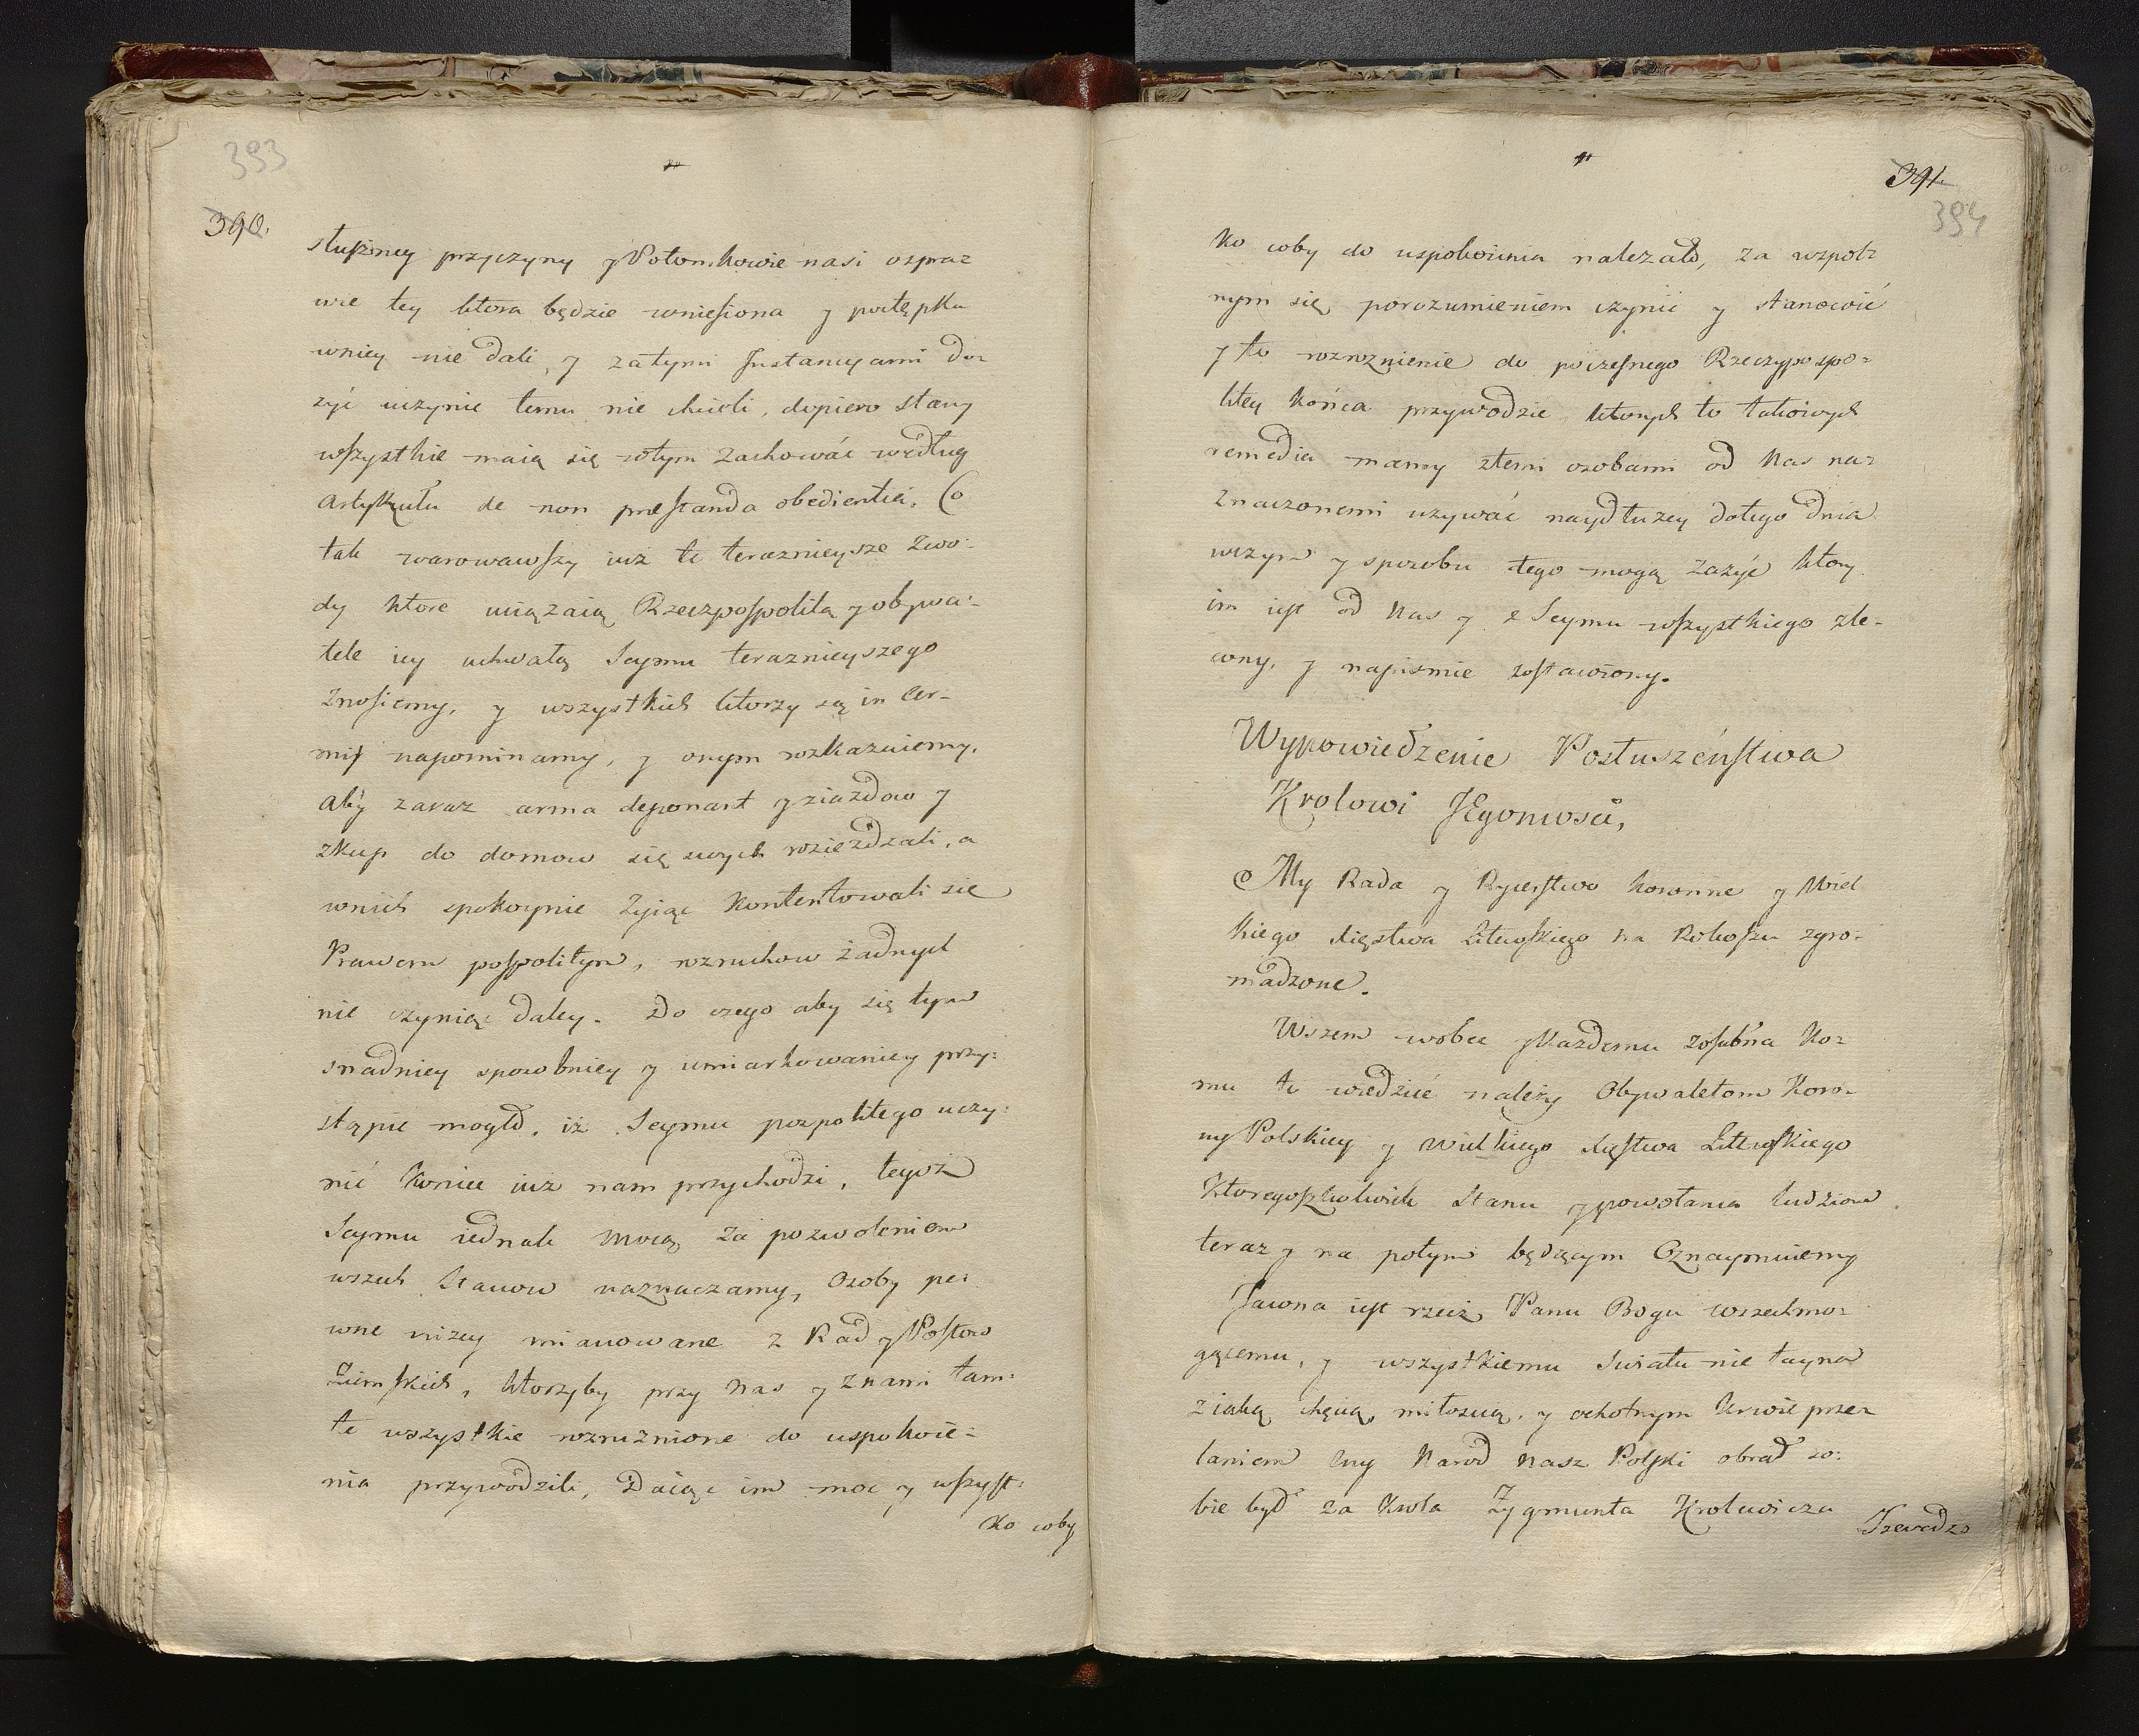 393
390.
słuszney przyczyny y Potomkowie nasi ospra=
wie tey ktora będzie wniesiona y postępku
wniey nie dali, y zatymi Instancyami do=
zyć uczynie temu nie chcieli, dopiero stany
wszystkie maią się wtym zachować według
Artykułu de non præstanda obedientia. Co
tak warowawszy iuż te teraznieysze zwo=
dy ktore wiązaią Rzeczpospolitą y obywa=
tele iey uchwałą Seymu teraznieyszego
znosiemy, y wszystkich ktorzy są in Ar=
mis napominamy, y onym rozkazuiemy,
aby zaraz arma deponant y ziazdow y
zkup do domow się swych rozieżdzali, a
wnich spokoynie żyiąc kontentowali się
Prawem pospolitym, rozruchow żadnych
nie czyniąc daley. Do czego aby się tym
snadniey sposobniey y umiarkowaniey przy=
stąpic mogło, iż Seymu pospolitego uczy=
nić koniec iuż nam przychodzi, tegoż
Seymu iednak mocą za pozwoleniem
wszech Stanow naznaczamy, Osoby pe=
wne niżey mianowane z Rad y Posłow
Ziemskich, ktorzyby przy nas y znami tam=
te wszystkie rozrużnione do uspokoie=
nia przywodzili, Daiąc im moc y wszyst=
ko coby
391.
394
ko coby do uspokoienia należało, za wspol=
nym się porozumieniem czynić y stanowić
y to rozroznienie do poczesnego Rzeczypospo=
litey końca przywodzic ktorych to takowych
remedia mamy ztemi osobami od nas na=
znaczonemi uzywać naydłużey dotego dnia
wczym y sposobu tego mogą zażyć ktory
im iest od nas y z Seymu wszystkiego zle=
cony, y napismie zostawiony.
Wypowiedzenie Posłuszeństwa
Krolowi JEgomości,
My Rada y Rycerstwo koronne y Wiel
kiego Xięstwa Litewskiego na Rokoszu zgro=
madzone.
Wszem wobec y Każdemu zosobna Ko=
mu to wiedzieć należy Obywatelom Koro=
ny Polskiey y Wielkiego Xięstwa Litewskiego
Ktoregoszkolwiek Stanu y powołania ludziom
teraz y na potym będącym Oznaymuiemy
Jawna iest rzecz Panu Bogu wszechmo=
gącemu, y wszystkiemu Swiatu nie tayna
ziaką chęcią, miłoscią, y ochotnym krwie prze=
laniem cny Narod nasz Polski obrał so=
bie był za Krola Zygmunta Krolewicza
Szwedz